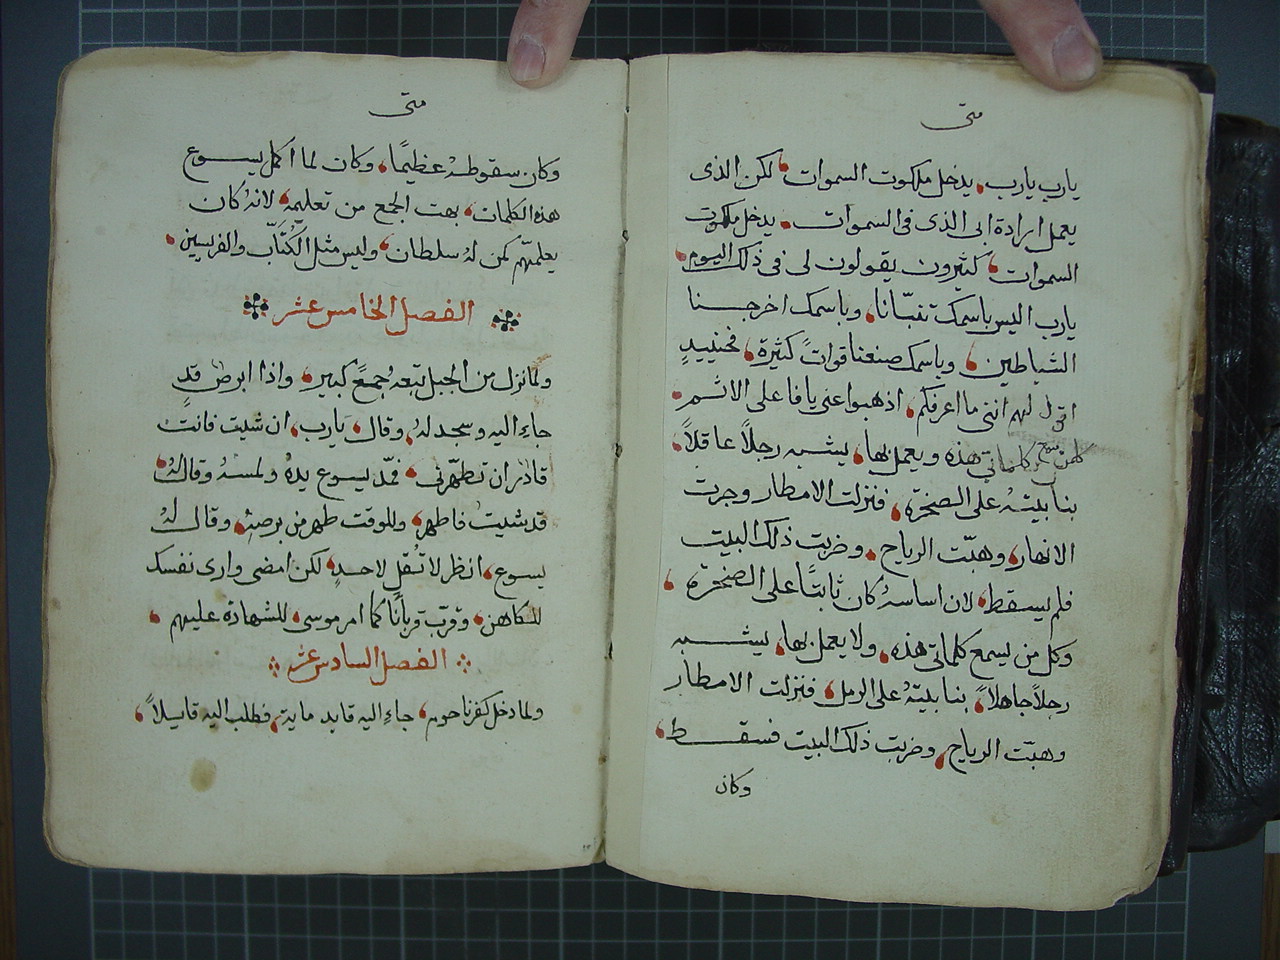 متى
يارب يارب، يدخل ملكوت السموات، لكن الذى
يعمل ارادة ابى الذى فى السموات، يدخل ملكوت
السموات، كثيرون يقولون لى فى ذلك اليوم،
يارب اليس باسمك تنبّانا، وباسمك اخرجنا
الشياطين، وباسمك صنعنا قواتً كثيرة، فحينيدٍ
اقول لهم اننى ما اعرفكم، اذهبوا عنى يافاعلى الاثم،
كلماتى هذه ويعمل بها، يشبه رجلاً عاقلاً،
بنا بيتهُ على الصخرة، فنزلت الامطار وجرت
الانهار، وهبّت الرياح، وضربت ذلك البيت
فلم يسقط، لان اساسهُ كان ثابتًا على الصخرة،
وكل من يسمع كلماتى هذه، ولا يعمل بها، يشبه
رجلاً جاهلاً، بنا بيتهُ على الرمل، فنزلت الامطار
وهبّت الرياح، وضربت ذلك البيت فسقط،
وكان
متى
وكان سقوطهُ عظيمًا، وكان لما اكمل يسوع
هذه الكلمات، بهت الجمع من تعليمه، لانهُ كان
يعلمهم كمن لهُ سلطان، وليس مثل الكُتّاب والفريسين،
الفصل الخامس عشر
ولما نزل من الجبل تبعهُ جمعً كبير، واذا ابرص قد
جاء اليه وسجد لهُ، وقال، يارب، ان شيت فانت
قادرُ ان تطهّرنى، فمدّ يسوع يدهُ ولمسهُ وقال لهُ،
قد شيتُ فاطهر، وللوقت طهر من برصهِ، وقال لهُ
يسوع، انظر لا تقل لاحدٍ، لكن امضى وارى نفسك
للكاهن، وقرّب قربانًا كما امر موسى، للشهادة عليهم،
الفصل السادس عشر
ولما دخل كفرناحوم، جاء اليه قايد ماية، فطلب اليه قايلاً،